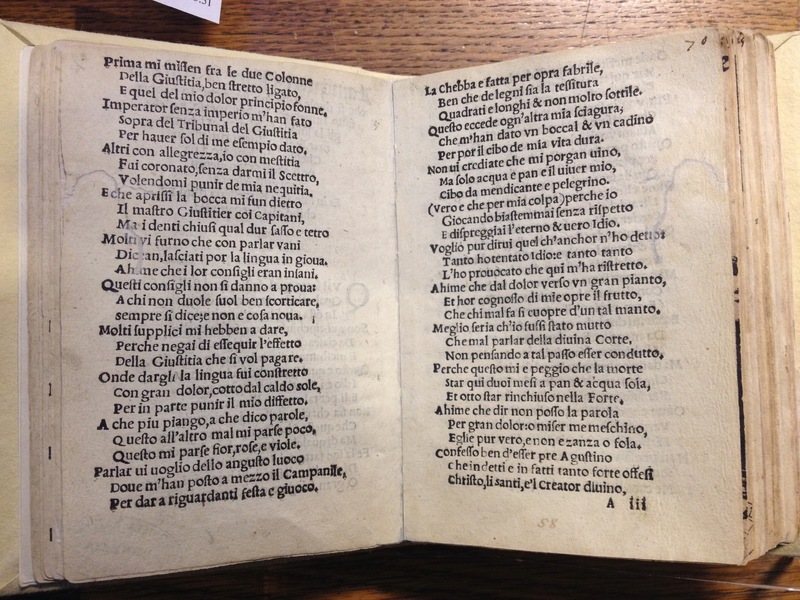 Prima mi missen fra le due Colonne
Della Giustitia, ben stretto ligato,
E quel del mio dolor principio fonne.
Imperator senza imperio m'han fato
Sopra del Tribunal del Giustitia
Per hauer sol di me esempio dato.
Altri con allegrezza, io con mestitia
Fui coronato, senza darmi il Scettro,
Volendomi punir de mia nequitia.
E che aprissi la bocca mi fun dietro
Il mastro Giustitier coi Capitani,
Ma i denti chiusi qual dur sasso e tetro
Molti vi furno che con parlar vani
Dicean, lasciati por la lingua in gioua.
Ahime che i lor consigli eran insani.
Questi consigli non si danno a proua:
A chi non duole suol ben scorticare,
sempre si dice: e non e cosa noua.
Molti supplici mi hebben a dare,
Perche negai di essequir l'effetto
Della Giustitia che si vol pagare.
Onde dargli la lingua fui constretto
Con gran dolor, cotto dal caldo sole,
Per in parte punir il mio diffetto.
A che piu piango, a che dico parole,
Questo all'altro mal mi parse poco,
Questo mi parse fior, rose, e viole.
Parlar ui uoglio dello angusto luoco
Doue m'han posto a mezzo il Campanile,
Per dar a riguardanti festa e giuoco.
70
La Chebba e fatta per opra fabrile,
Ben che de legni sia la tessitura
Quadrati e longhi & non molto sottile.
Questo eccede ogn'altra mia sciagura;
Che m'han dato vn boccal & vn cadino
Per por il cibo de mia vita dura.
Non ui crediate che mi porgan uino,
Ma solo acqua e pan e il uiuer mio,
Cibo da mendicante e pelegrino.
(Vero e che per mia colpa) perche io
Giocando biastemmai senza rispetto
E dispreggiai l'eterno & uero Idio.
Voglio pur dirui quel ch'anchor n'ho detto:
Tanto ho tentato Idio: e tanto tanto
L'ho prouocato che qui m'ha ristretto.
Ahime che dal dolor verso vn gran pianto,
Et hor cognosso di mie opre il frutto,
Che chi mal fa si cuopre d'un tal manto.
Meglio seria ch'io fussi stato mutto
Che mal parlar della diuina Corte,
Non pensando a tal passo esser condutto.
Perche questo mi e peggio che la morte
Star qui duoi mesi a pan & acqua sola,
Et otto star rinchiuso nella Forte.
Ahime che dir non posso la parola
Per gran dolor: o miser me meschino,
Eglie pur vero, e non e zanza o fola.
Confesso ben d'esser pre Agustino
che in detti e in fatti tanto forte offesi
Christo, li santi, e'l Creator diuino,
A iii
58